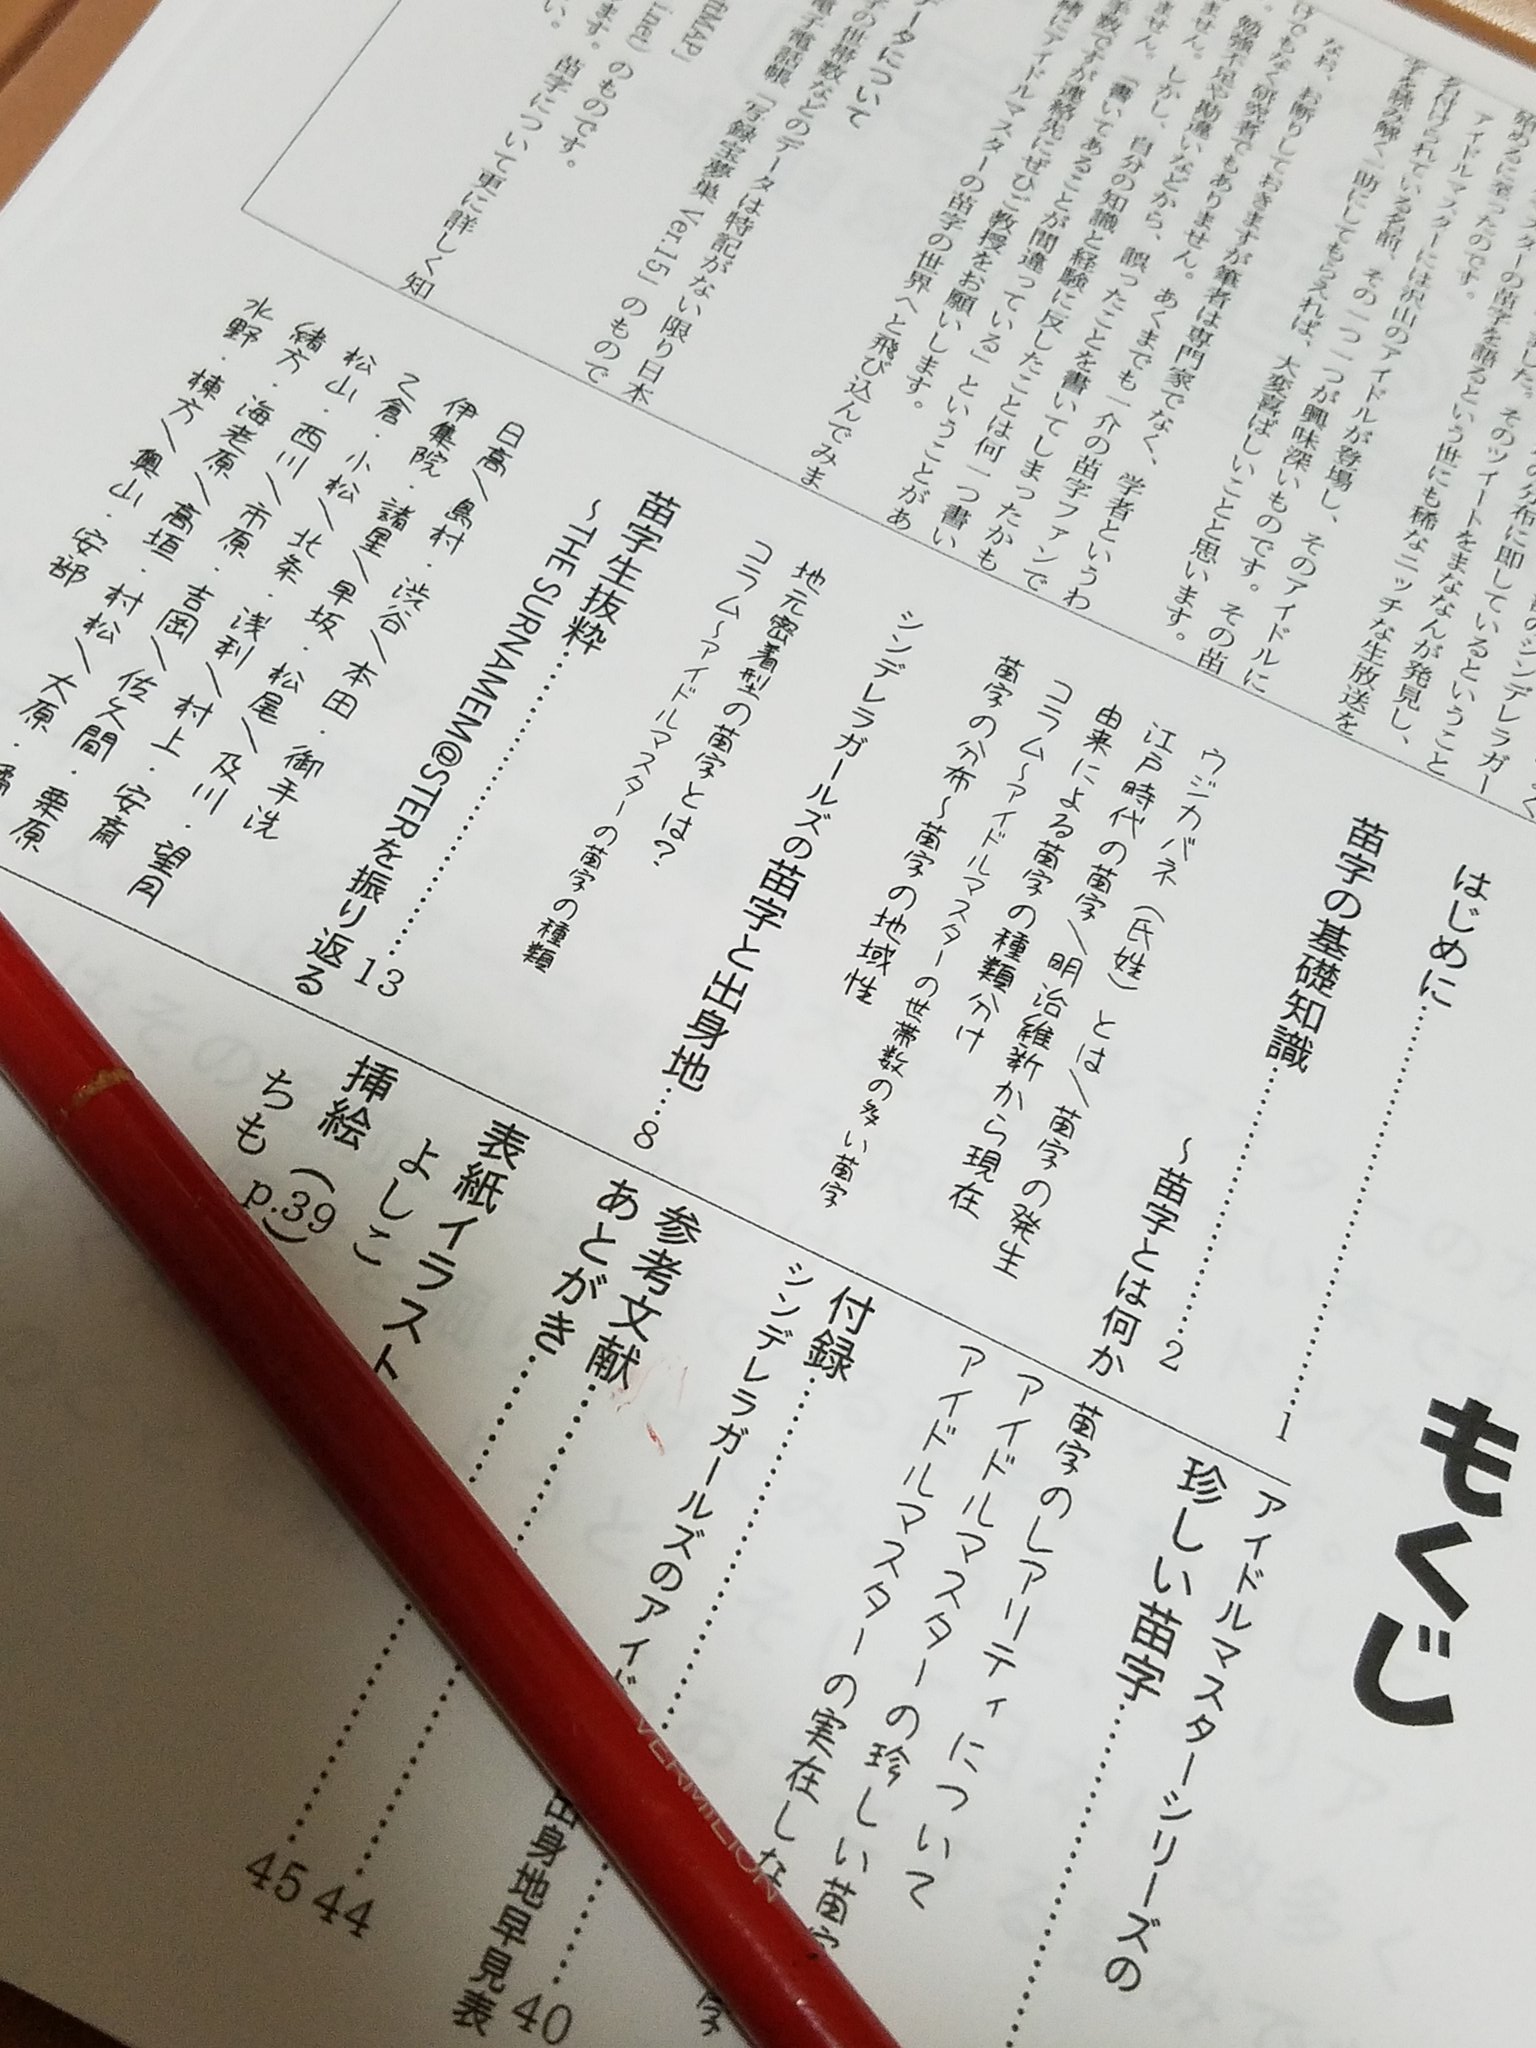 もくじ
はじめに……1
苗字の基礎知識
～苗字とは何か……2
ウジカバネ（氏姓）とは＼苗字の発生
江戸時代の苗字＼明治維新から現在
由来による苗字の種類分け
コラム～アイドルマスターの世帯数の多い苗字
苗字の分布～苗字の地域性
シンデレラガールズの苗字と出身地……8
地元密着型の苗字とは？
コラム～アイドルマスターの苗字の種類
苗字生抜粋
～THE SURNAMEM@STERを振り返る……13
日高＼島村・渋谷＼本田・御手洗
伊集院・諸星＼早坂・松尾＼及川・望月
乙倉・小松＼北条・浅利＼村上・安斎
松山・西川＼市原・吉岡＼佐久間・栗原
緒方・海老原＼高垣・村松＼大原・
水野・棟方＼奥山・安部
アイドルマスターシリーズの
珍しい苗字……
苗字のレアリティについて
アイドルマスターの珍しい苗字
アイドルマスターの実在しな
字
付録……40
シンデレラガールズのアイド
出身地早見表
参考文献……44
あとがき……45
表紙イラスト
よしこ
挿絵（p.39）
ちも
アイドルマスターには沢山のアイドルが登場し、そのアイドルに
名付けられている名前、その一つ一つが興味深いものです。その苗
字を読み解く一助にしてもらえれば、大変喜ばしいことと思います。
なお、お断りしておきますが筆者は専門家でなく、学者というわ
けでもなく研究者でもありません。あくまでも一介の苗字ファンで
勉強不足や勘違いなどから、誤ったことを書いてしまったかも
ません。しかし、自分の知識と経験に反したことは何一つ書い
ません。「書いてあることが間違っている」ということがあ
手数ですが連絡先にぜひご教授をお願いします。
緒にアイドルマスターの苗字の世界へと飛び込んでみま
データについて
字の世帯数などのデータは特記がない限り日本
電子電話帳「写録宝夢巣 Ver.15」のもので
のものです。
苗字について更に詳しく知
VERMILION